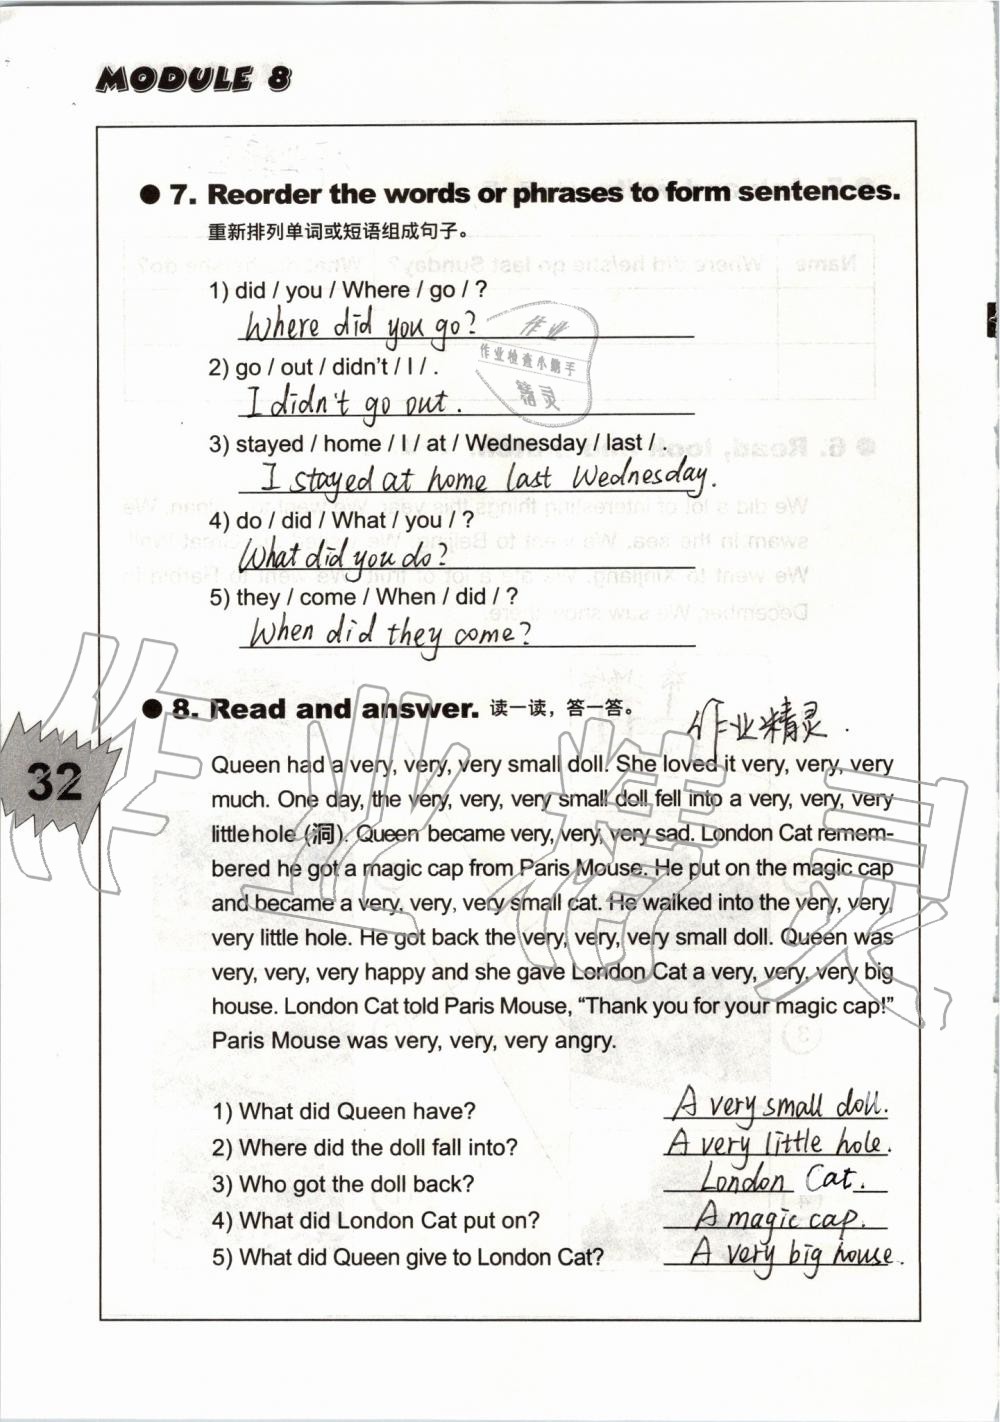 MODULE 8
● 7. Reorder the words or phrases to form sentences.
重新排列单词或短语组成句子。
1) did / you / Where / go / ?
Where did you go?
2) go / out / didn't / I / .
I didn't go out.
3) stayed / home / I / at / Wednesday / last / .
I stayed at home last Wednesday.
4) do / did / What / you / ?
What did you do?
5) they / come / When / did / ?
When did they come?
作业
作业检查小助手
精灵
● 8. Read and answer. 读一读，答一答。
作业精灵.
Queen had a very, very, very small doll. She loved it very, very, very
much. One day, the very, very, very small doll fell into a very, very, very
little hole (洞). Queen became very, very, very sad. London Cat remem-
bered he got a magic cap from Paris Mouse. He put on the magic cap
and became a very, very, very small cat. He walked into the very, very,
very little hole. He got back the very, very, very small doll. Queen was
very, very, very happy and she gave London Cat a very, very, very big
house. London Cat told Paris Mouse, “Thank you for your magic cap!”
Paris Mouse was very, very, very angry.
32
作业精灵
1) What did Queen have? A very small doll.
2) Where did the doll fall into? A very little hole.
3) Who got the doll back? London Cat.
4) What did London Cat put on? A magic cap.
5) What did Queen give to London Cat? A very big house.